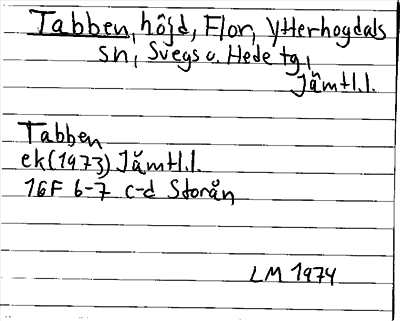 Tabben, höjd, Flor, Ytterhogdals
sn, Svegs o. Hede tg,
Jämtl.l.
Tabben
ek (1973) Jämtl.l.
16F 6-7 c-d Storån
LM 1974